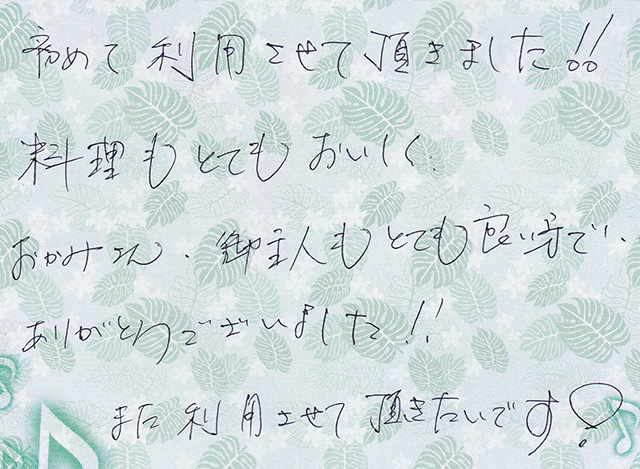 初めて利用させて頂きました!!
料理もとてもおいしく、
おかみさん、御主人もとても良い方で、
ありがとうございました!!
また利用させて頂きたいです!